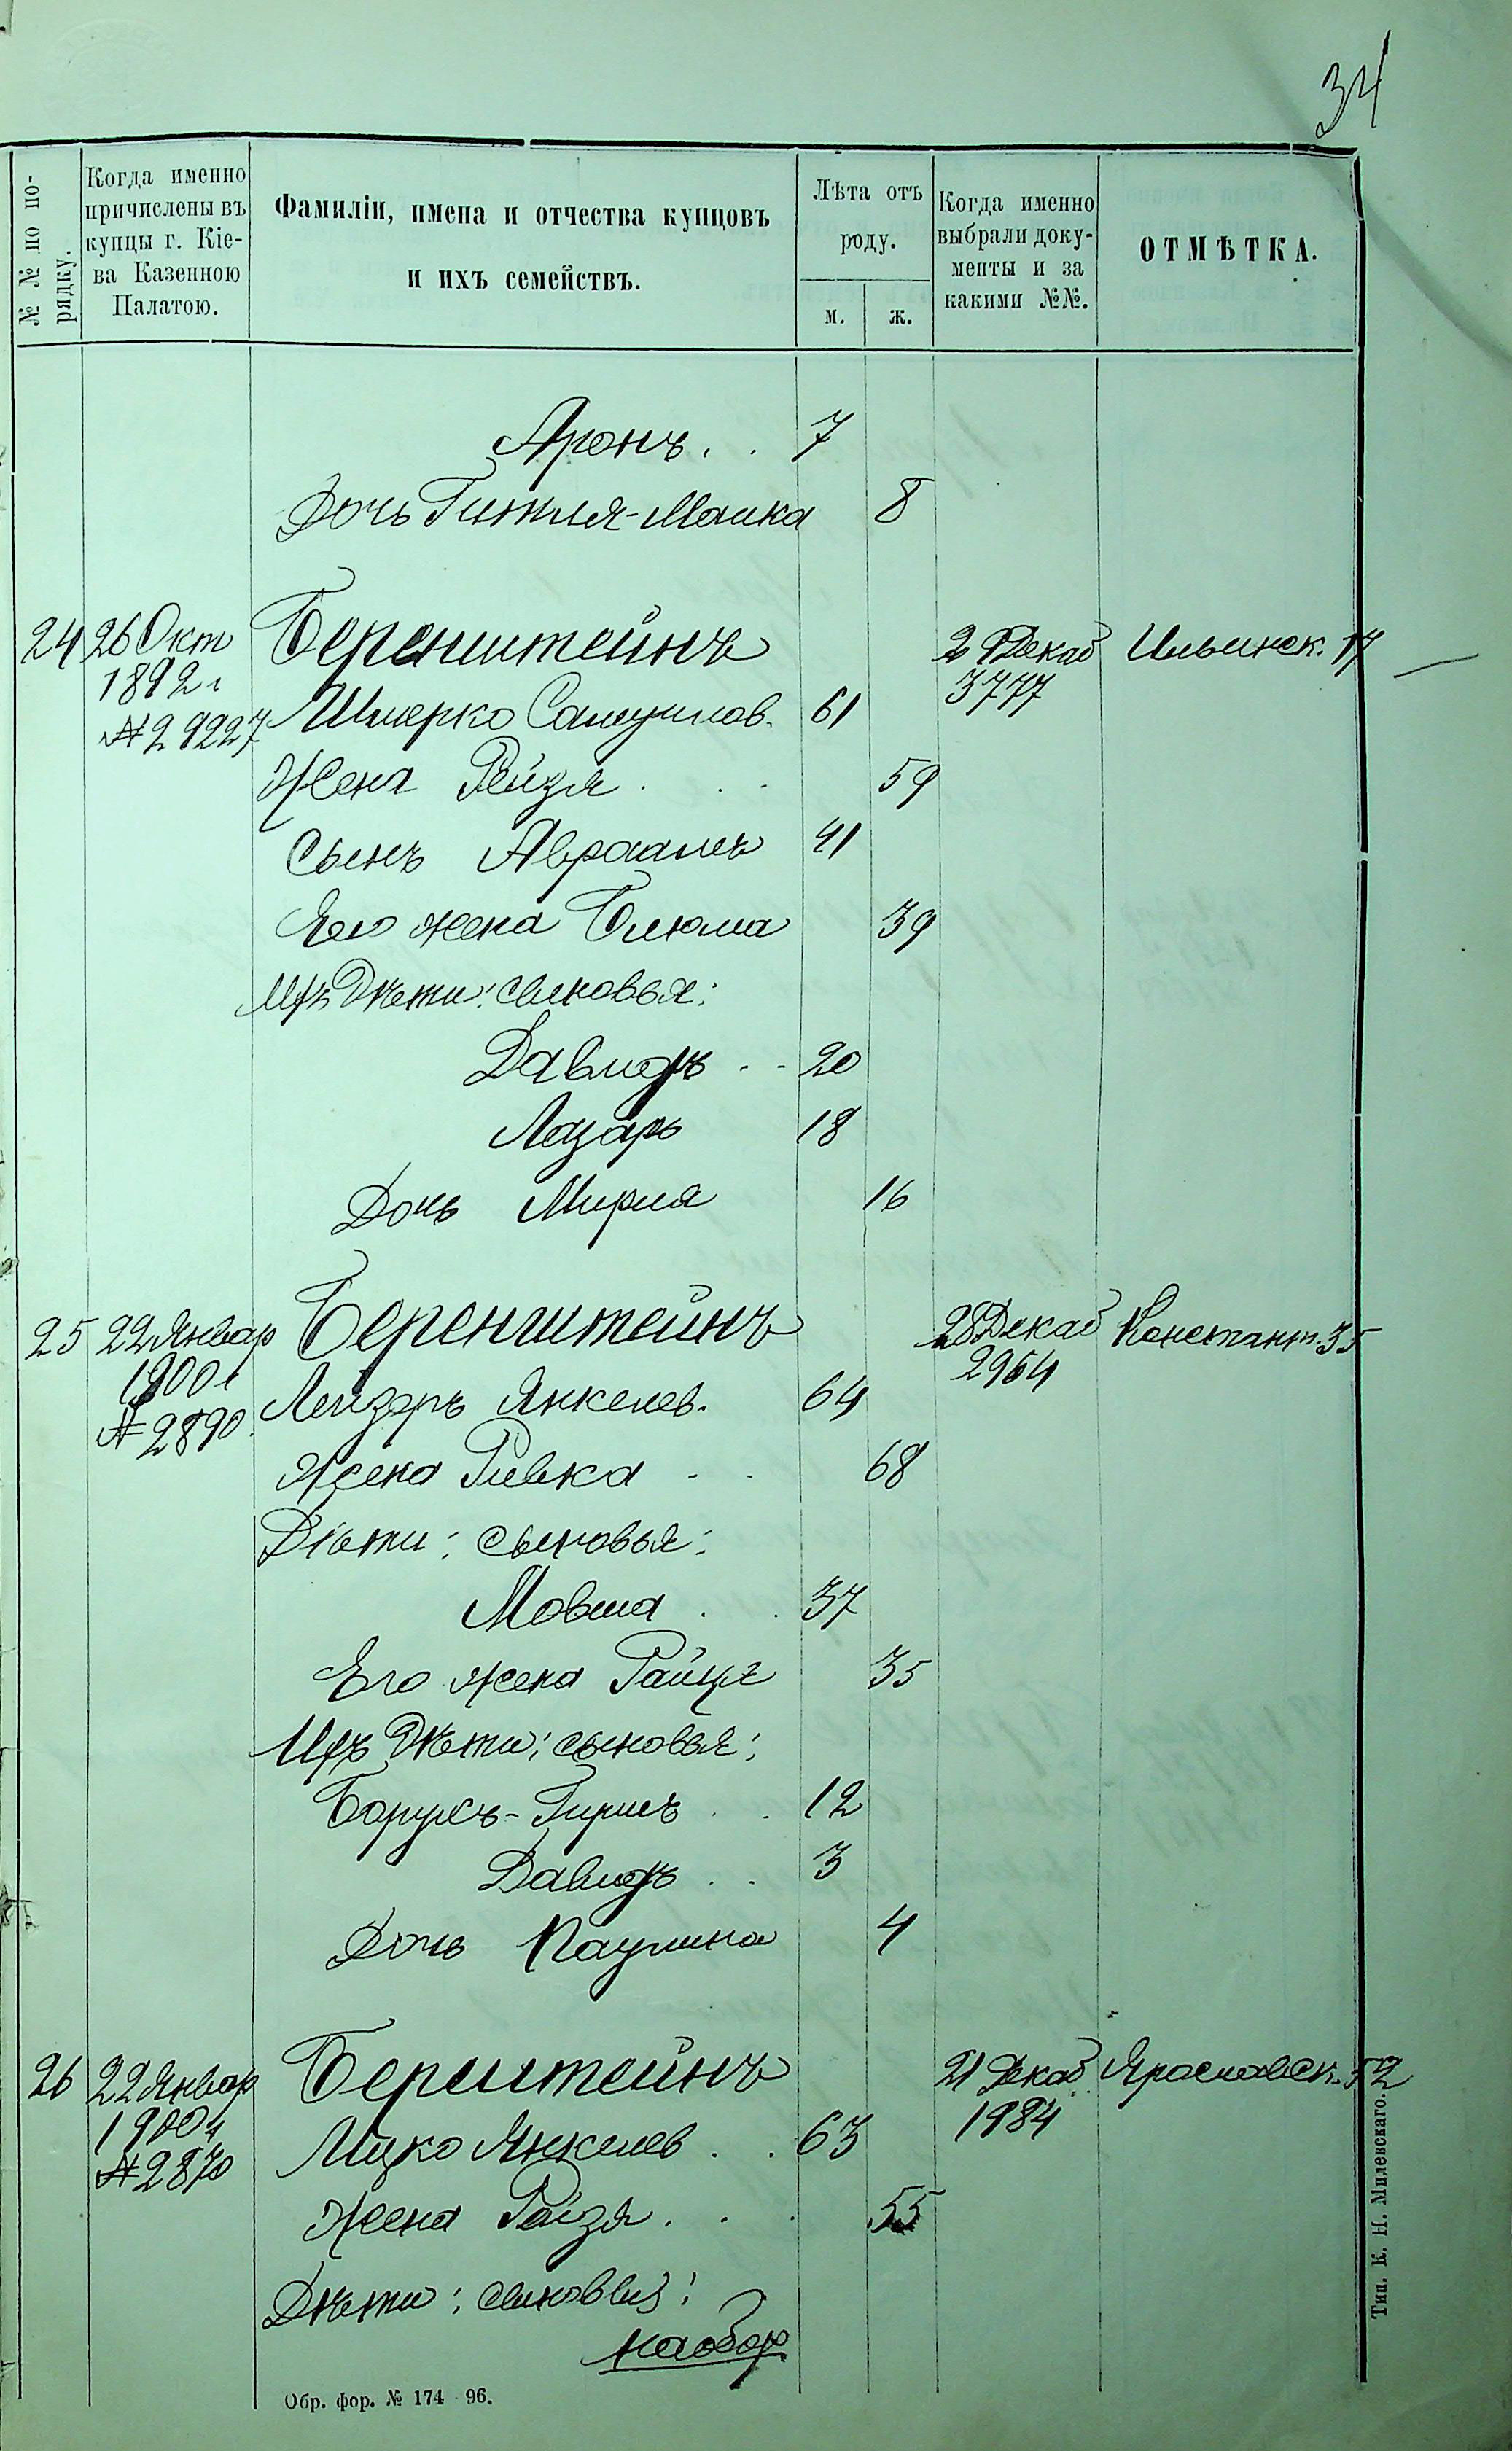 34
№ № по по-
рядку.
Когда именно
причислены въ
купцы г. Кіе-
ва Казенною
Палатою.
Фамиліи, имена и отчества купцовъ
и ихъ семействъ.
Лѣта отъ
роду.
м. ж.
Когда именно
выбрали доку-
менты и за
какими №№.
ОТМѢТКА.
Аронъ . . 7
Дочь Гитля-Малка 8
24 26 Окт Беренштейнъ Декаб Ильинск. 17
1892 г 3777
№ 29227 Шмерко Самуилов. 61
Жена Рейзя . . . 59
Сынъ Авраамъ 41
Его жена Блюма 39
Ихъ Дѣти: сыновья:
Давидъ . . 20
Лазарь 18
Дочь Мирля 16
25 22 Январ Беренштейнъ 28 Декаб Констант. 35
1900 г 2964
№ 2890 Лейзоръ Янкелев. 64
Жена Ривка - - 68
Дѣти: сыновья:
Мовша . . 37
Его жена Райця 35
Ихъ Дѣти: сыновья:
Борухъ-Гиршъ . . 12
Давидъ . . 3
Дочь Паулина 4
26 22 Январ Бернштейнъ 21 Декаб Ярославск. 52
1900 г 1984
№ 2870 Ицко Янкелев . . 63
Жена Райзя . . . 55
Дѣти: сыновья:
на обор
Обр. фор. № 174 - 96.
Тип. К. Н. Милевскаго.